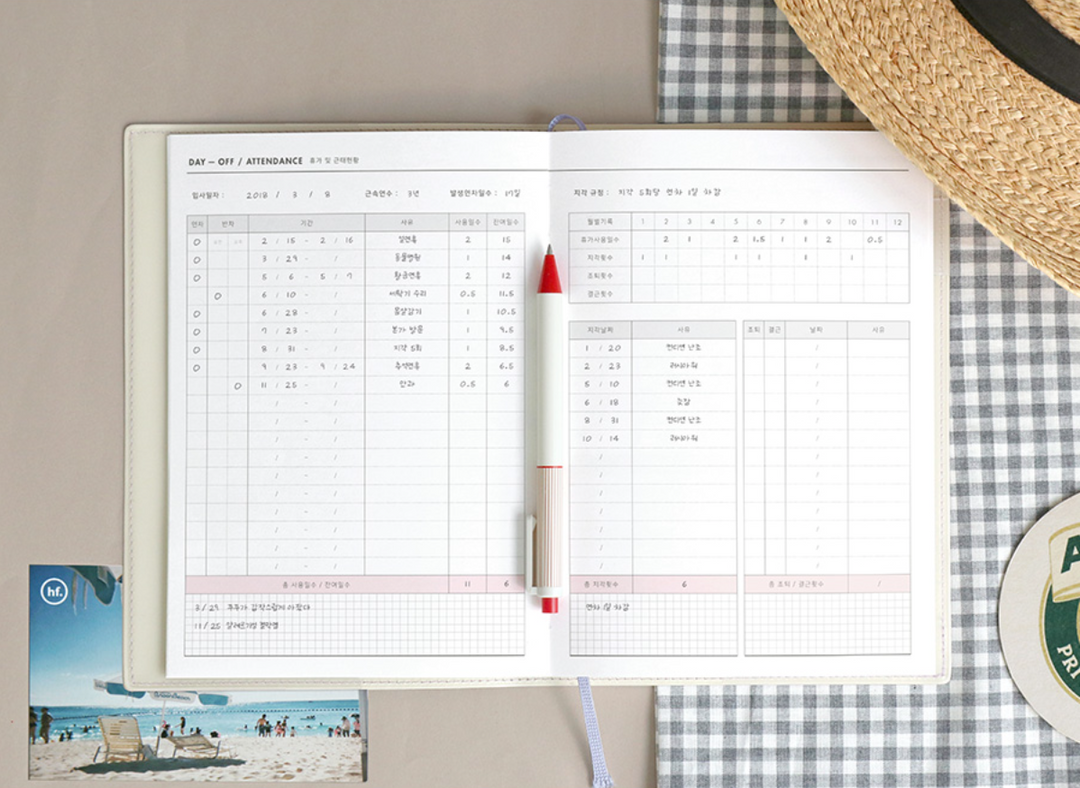 DAY — OFF / ATTENDANCE 휴가 및 근태현황
입사일자 : 2018 / 3 / 8 근속연수 : 3년 발생연차일수 : 17일
연차 반차 기간 사유 사용일수 잔여일수
O 2 / 15 - 2 / 16 설연휴 2 15
O 3 / 29 - / 동물병원 1 14
O 5 / 6 - 5 / 7 황금연휴 2 12
O 6 / 10 - / 세탁기 수리 0.5 11.5
O 6 / 28 - / 몸살감기 1 10.5
O 7 / 23 - / 본가 방문 1 9.5
O 8 / 31 - / 지각 5회 1 8.5
O 9 / 23 - 9 / 24 추석연휴 2 6.5
O 11 / 25 - / 안과 0.5 6
총 사용일수 / 잔여일수 11 6
3/29 갑작스럽게 아팠다
11/25 알레르기성 결막염
지각 규정 : 지각 5회당 연차 1일 차감
월별기록 1 2 3 4 5 6 7 8 9 10 11 12
휴가사용일수 2 1 2 1.5 1 1 2 0.5
지각횟수 1 1 1 1 1 1
조퇴횟수
결근횟수
지각날짜 사유
1 / 20 컨디션 난조
2 / 23 러시아워
5 / 10 컨디션 난조
6 / 18 늦잠
8 / 31 컨디션 난조
10 / 14 러시아워
총 지각횟수 6
연차 1일 차감
조퇴 결근 날짜 사유
총 조퇴 / 결근횟수 /
hf.
PRI